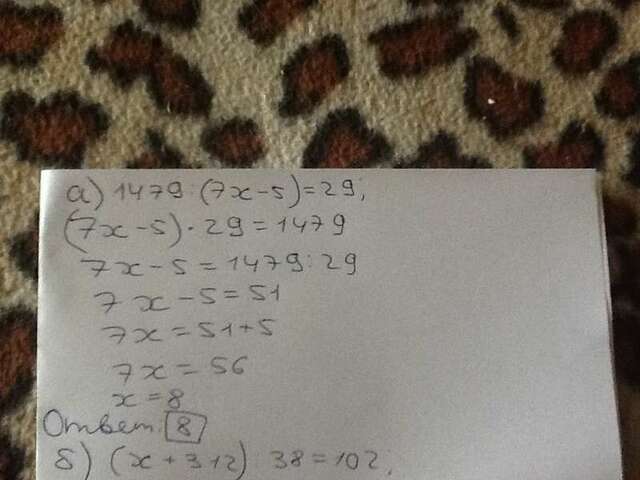 а) 1479 : (7x-5)=29;
(7x-5)·29=1479
7x-5=1479:29
7x-5=51
7x=51+5
7x=56
x=8
Ответ: 8
б) (x+312) : 38=102,